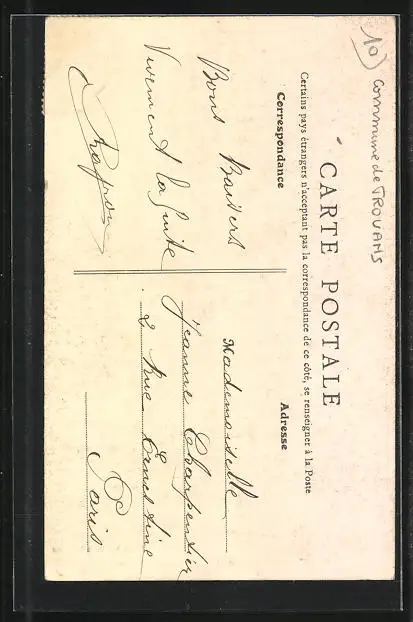 10
commune de TROUANS
CARTE POSTALE
Certains pays étrangers n'acceptant pas la correspondance de ce côté, se renseigner à la Poste
Correspondance
Adresse
Bons Baisers
Vivement la suite
Mademoiselle
Jeanne Charpentier
2 Rue Ernestine
Paris